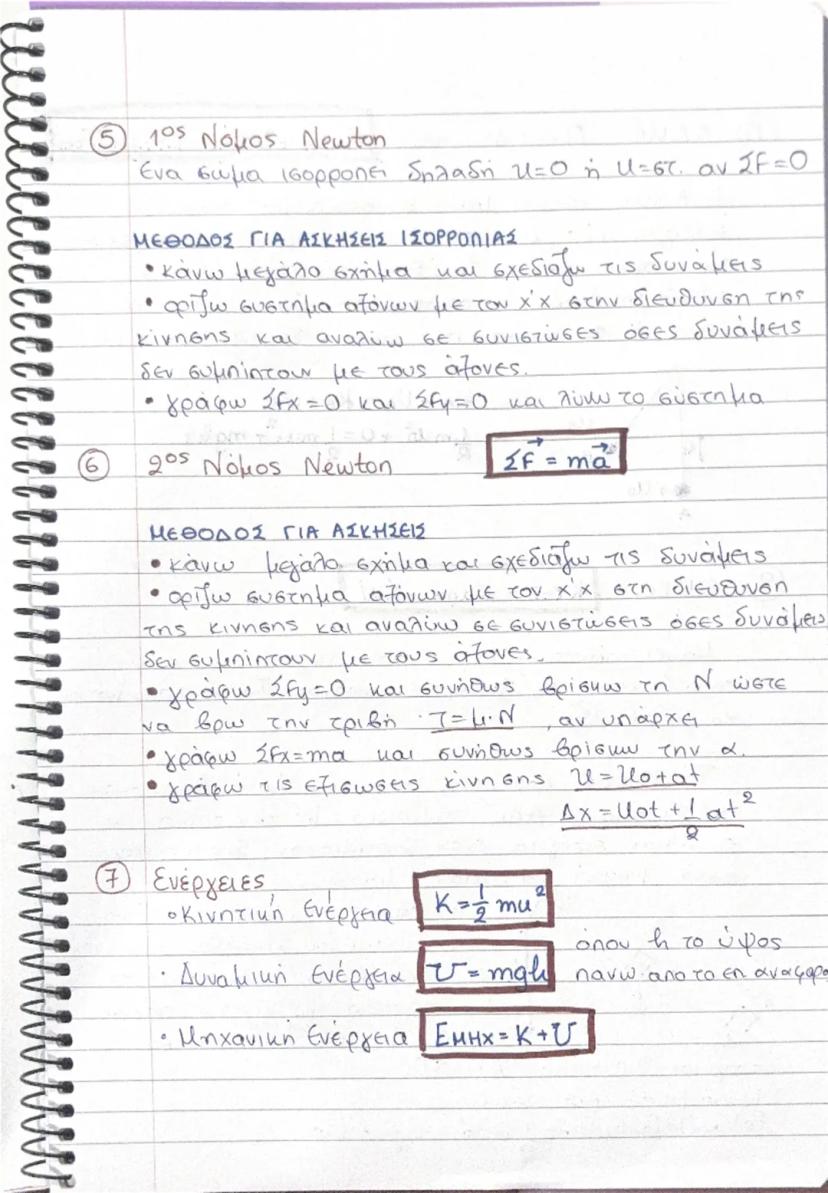 ⑤ 1ος Νόμος Newton
Ένα σωμα ισορροπεί δηλαδή u=0 ή u=στ. αν ΣF=0
ΜΕΘΟΔΟΣ ΓΙΑ ΑΣΚΗΣΕΙΣ ΙΣΟΡΡΟΠΙΑΣ
• κάνω μεγάλο σχήμα και σχεδιάζω τις δυνάμεις
• ορίζω συστήμα αξόνων με τον x'x στην διεύθυνση της
κίνησης και αναλύω σε συνιστώσες όσες δυνάμεις
δεν συμπίπτουν με τους άξονες.
• γράφω ΣFx=0 και ΣFy=0 και λύνω το σύστημα
⑥ 2ος Νόμος Newton ΣF⃗ = ma⃗
ΜΕΘΟΔΟΣ ΓΙΑ ΑΣΚΗΣΕΙΣ
• κάνω μεγάλο σχήμα και σχεδιάζω τις δυνάμεις
• ορίζω συστήμα αξόνων με τον x'x στη διεύθυνση
της κινησης και αναλύω σε συνιστώσεις όσες δυνάμεις
δεν συμπιπτουν με τους άξονες.
• γράφω ΣFy=0 και συνήθως βρίσκω τη N ώστε
να βρω την τριβή T=μ·N, αν υπάρχει
• γράφω ΣFx=ma και συνήθως βρίσκω την α.
• γράφω τις εξισωσεις κίνησης u=u₀+at
Δx=u₀t+½at²
⑦ Ενέργειες
◦ Κινητική Ενέργεια K=½mu²
όπου h το ύψος
· Δυναμική ενέργεια U=mgh πανω απο το επ αναφορα
· Μηχανική Ενέργεια Eμηχ=K+U